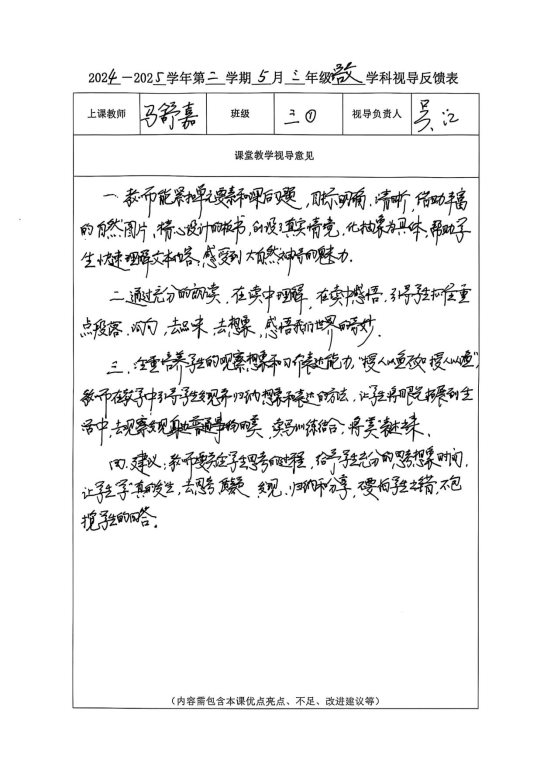 2024-2025学年第二学期5月三年级语文学科视导反馈表
上课教师 马舒嘉 班级 三① 视导负责人 吴江
课堂教学视导意见
一、教师能紧扣单元要素和课后习题，目标明确、清晰，借助丰富
的自然图片，精心设计的板书，创设真实情境，化抽象为具体，帮助学
生快速理解文本内容，感受到大自然神奇的魅力。
二、通过充分的朗读，在读中理解，在读中感悟，引导学生抓住重
点段落、词句，去品味、去想象，感悟我们世界的奇妙。
三、注重培养学生的观察想象和习作表达能力，"授人以鱼不如授人以渔"，
教师在教学中引导学生发现并归纳想象和表达的方法，让学生将眼光拓展到生
活中，去观察发现身边普通事物的美，读写训练结合，将美表达出来。
四、建议：教师要关注学生思考的过程，给予学生充分的思考想象时间，
让学生学习真的发生，去思考 发现、归纳和分享，不要怕学生出错，不包
揽学生的回答。
（内容需包含本课优点亮点、不足、改进建议等）